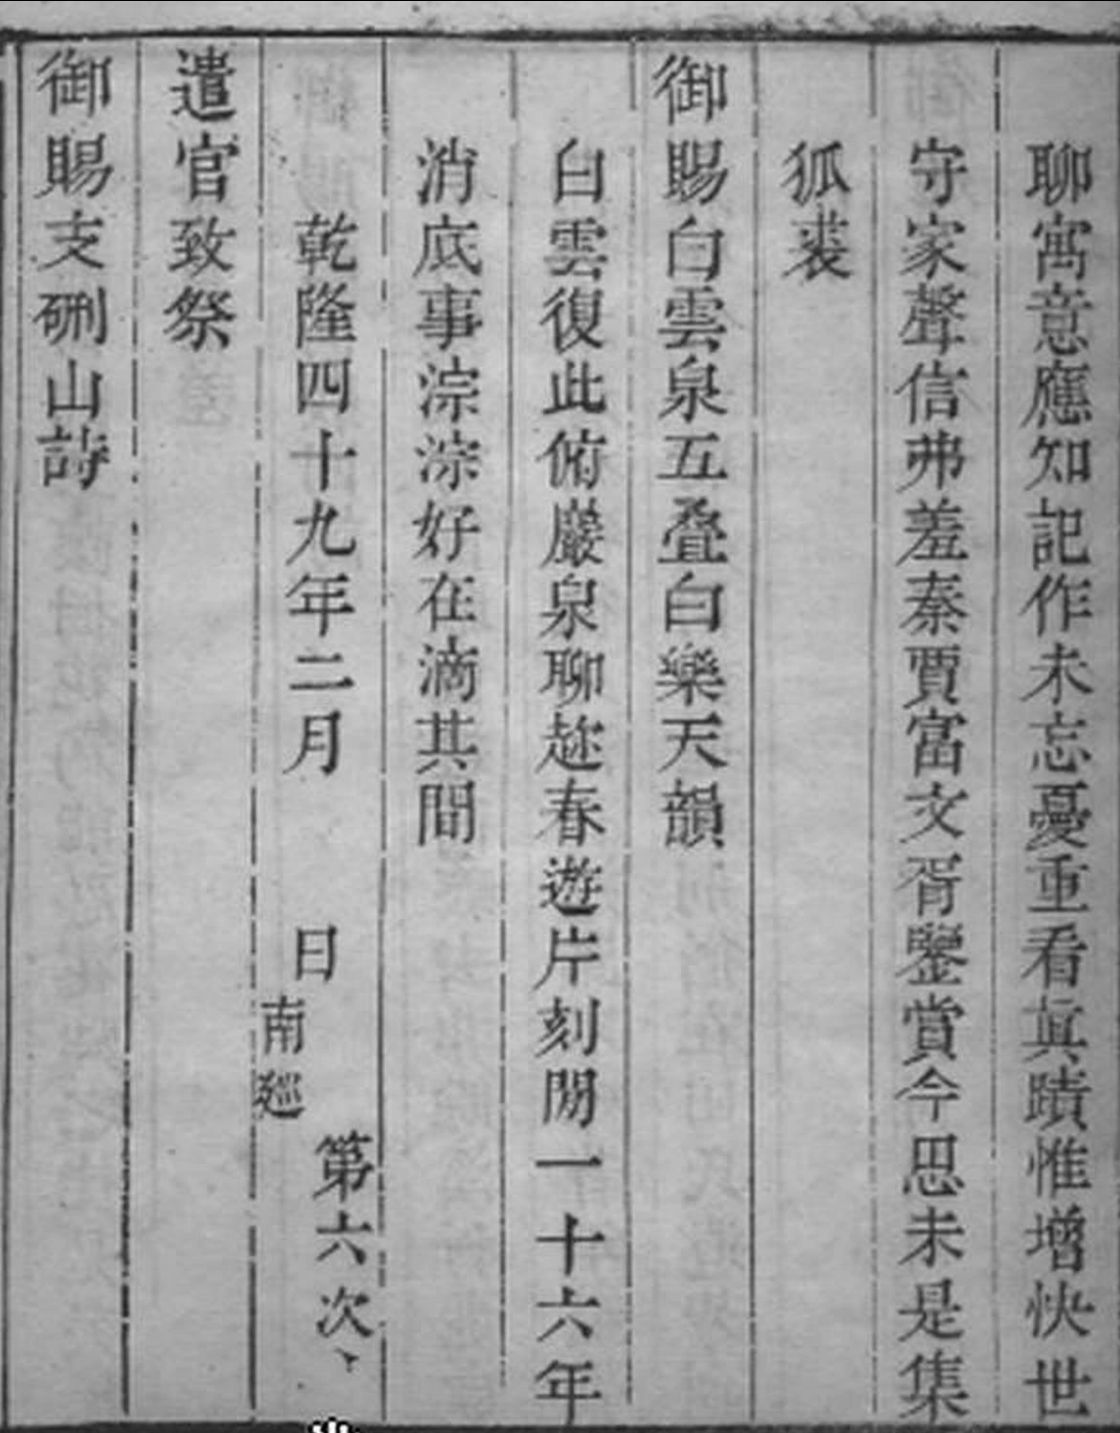 聊寓意應知記作未忘憂重看眞蹟惟增快世
守家聲信弗羞秦賈富文胥鑒賞今思未是集
狐裘
御賜白雲泉五叠白樂天韻
白雲復此俯巖泉聊趂春遊片刻閒一十六年
消底事淙淙好在滴其間
乾隆四十九年二月 日南廵第六次
遣官致祭
御賜支硎山詩